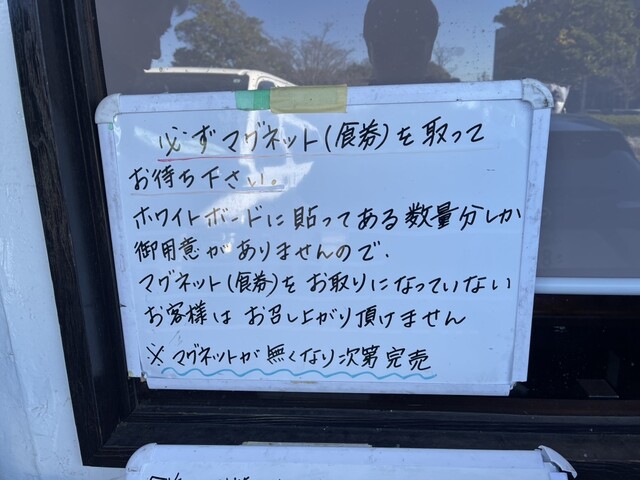 必ずマグネット(食券)を取って
お待ち下さい。
ホワイトボードに貼ってある数量分しか
御用意がありませんので、
マグネット(食券)をお取りになっていない
お客様はお召し上がり頂けません
※マグネットが無くなり次第完売